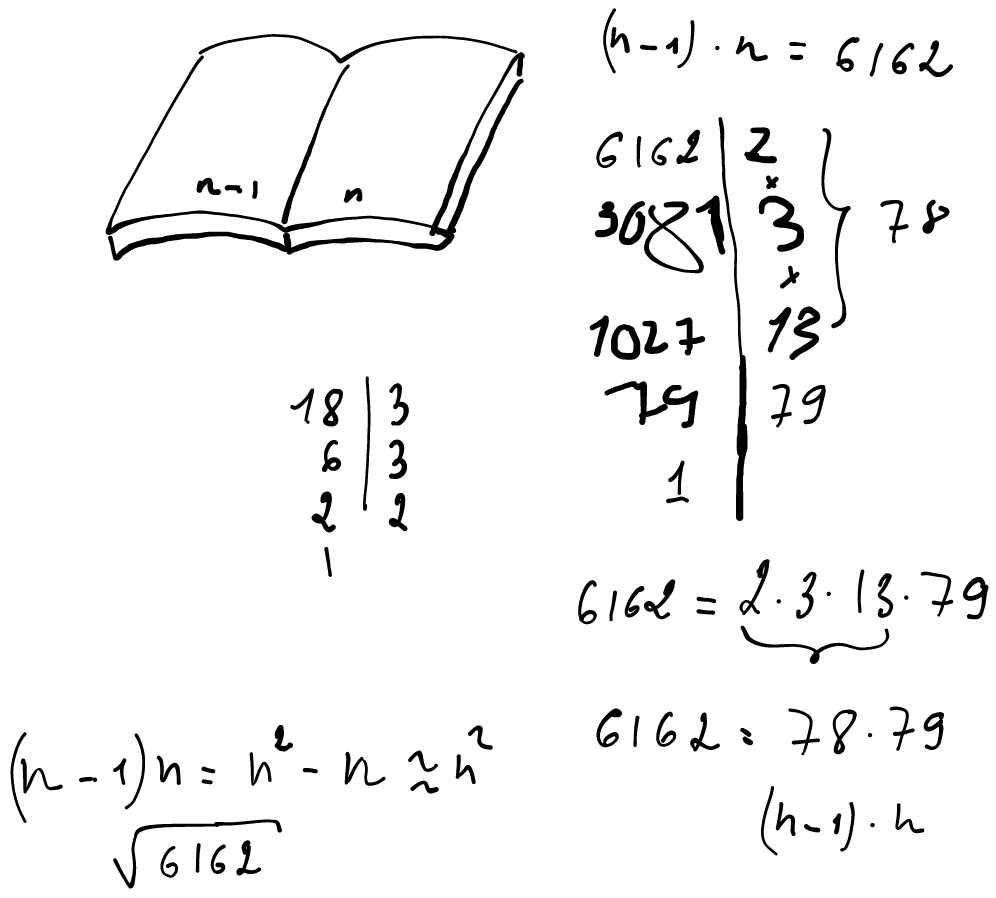 (n-1) · n = 6162
n-1 n
6162 | 2
×
3081 | 3 } 78
×
1027 | 13
79 | 79
1
18 | 3
6 | 3
2 | 2
1
6162 = 2 · 3 · 13 · 79
6162 = 78 · 79
(n-1) · n
(n-1)n = n² - n ≈ n²
√6162